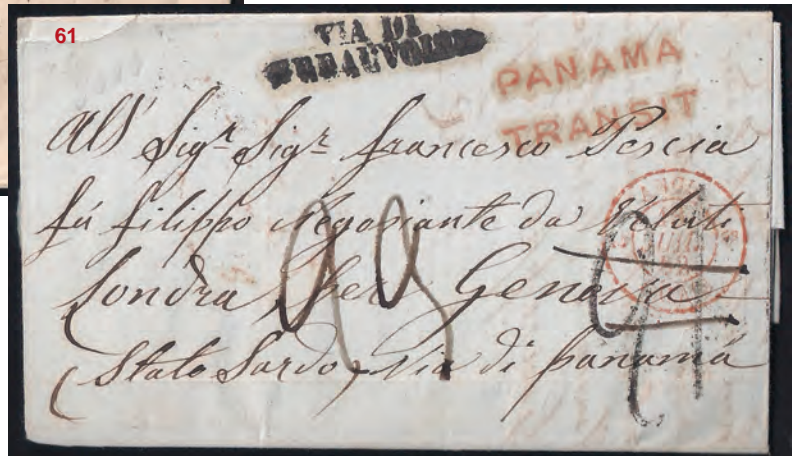 61
VIA DI
PANAMA
TRANSIT
All' Sigr Sigr Francesco Pescia
fú Filippo Negoziante da Veluti
Londra per Genova
Stato Sardo, Via di Panamá